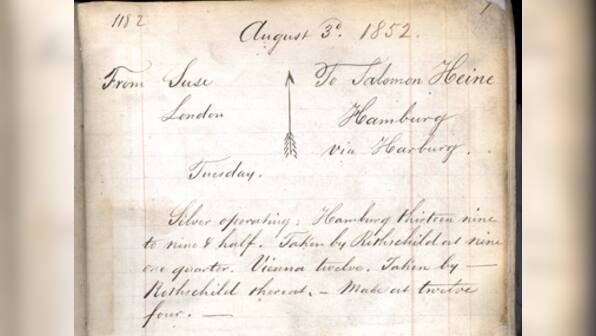 1182
August 3d. 1852.
From Suse To Salomon Heine
London Hamburg
via Harburg.
Tuesday.
Silver operating; Hamburg thirteen nine
to nine & half. Taken by Rothschild at nine
one quarter. Vienna twelve. Taken by —
Rothschild thereat. — Made at twelve
four. —